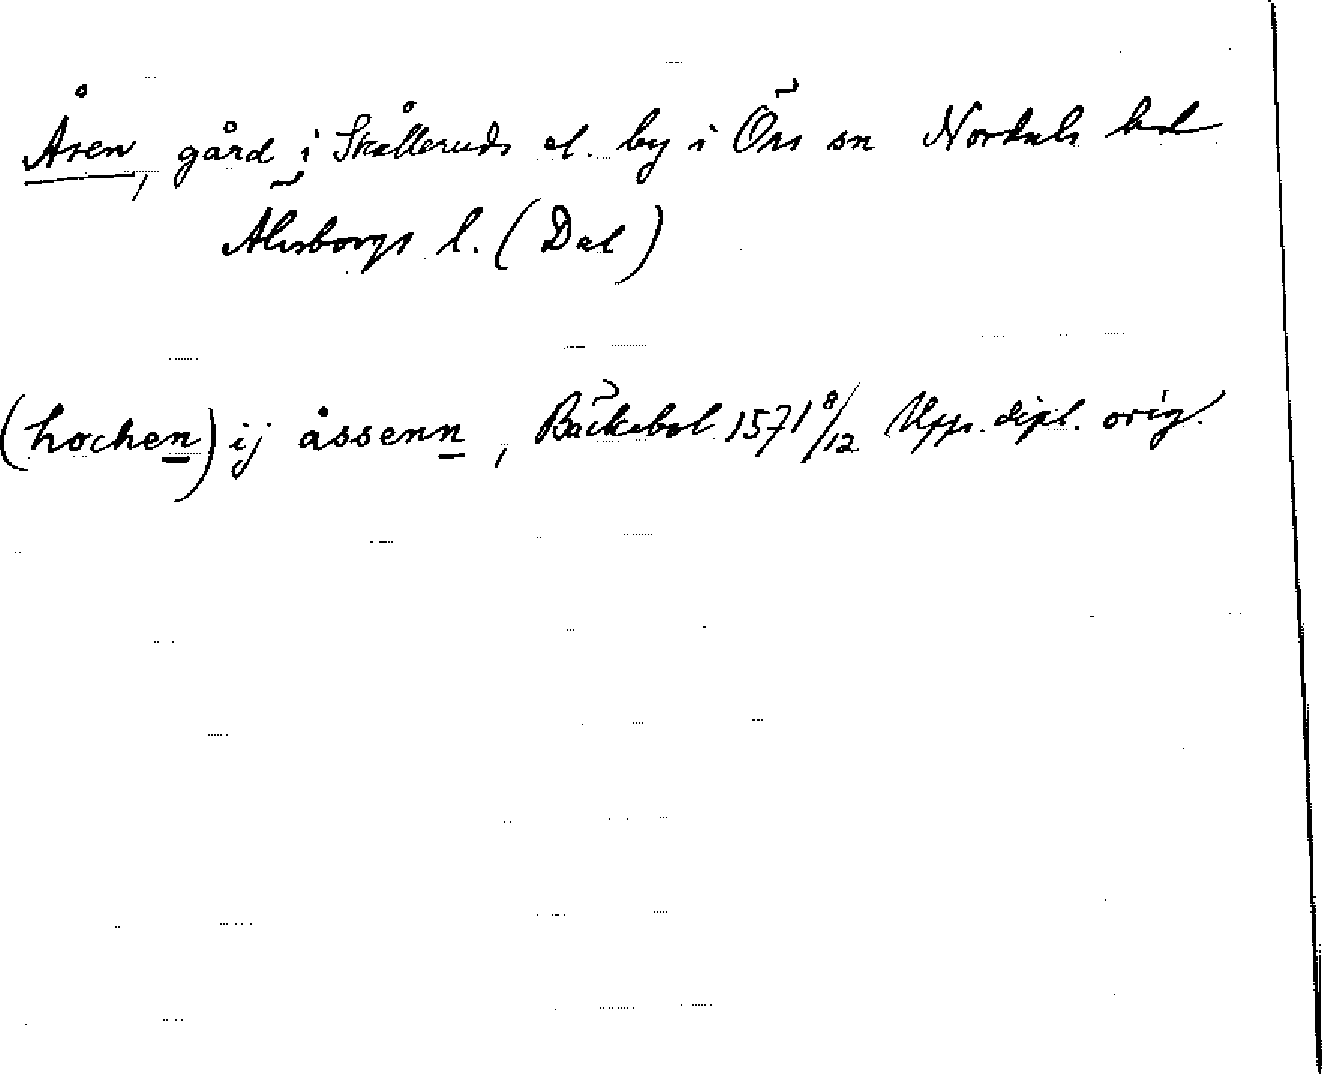 Åsen, gård i Skålleruds el. by i Örs sn Nordals hd
Älvsborgs l. (Dal)
(hochen) ij åssenn, Bäckebol 1571 8/12 Upps. dipl. orig.